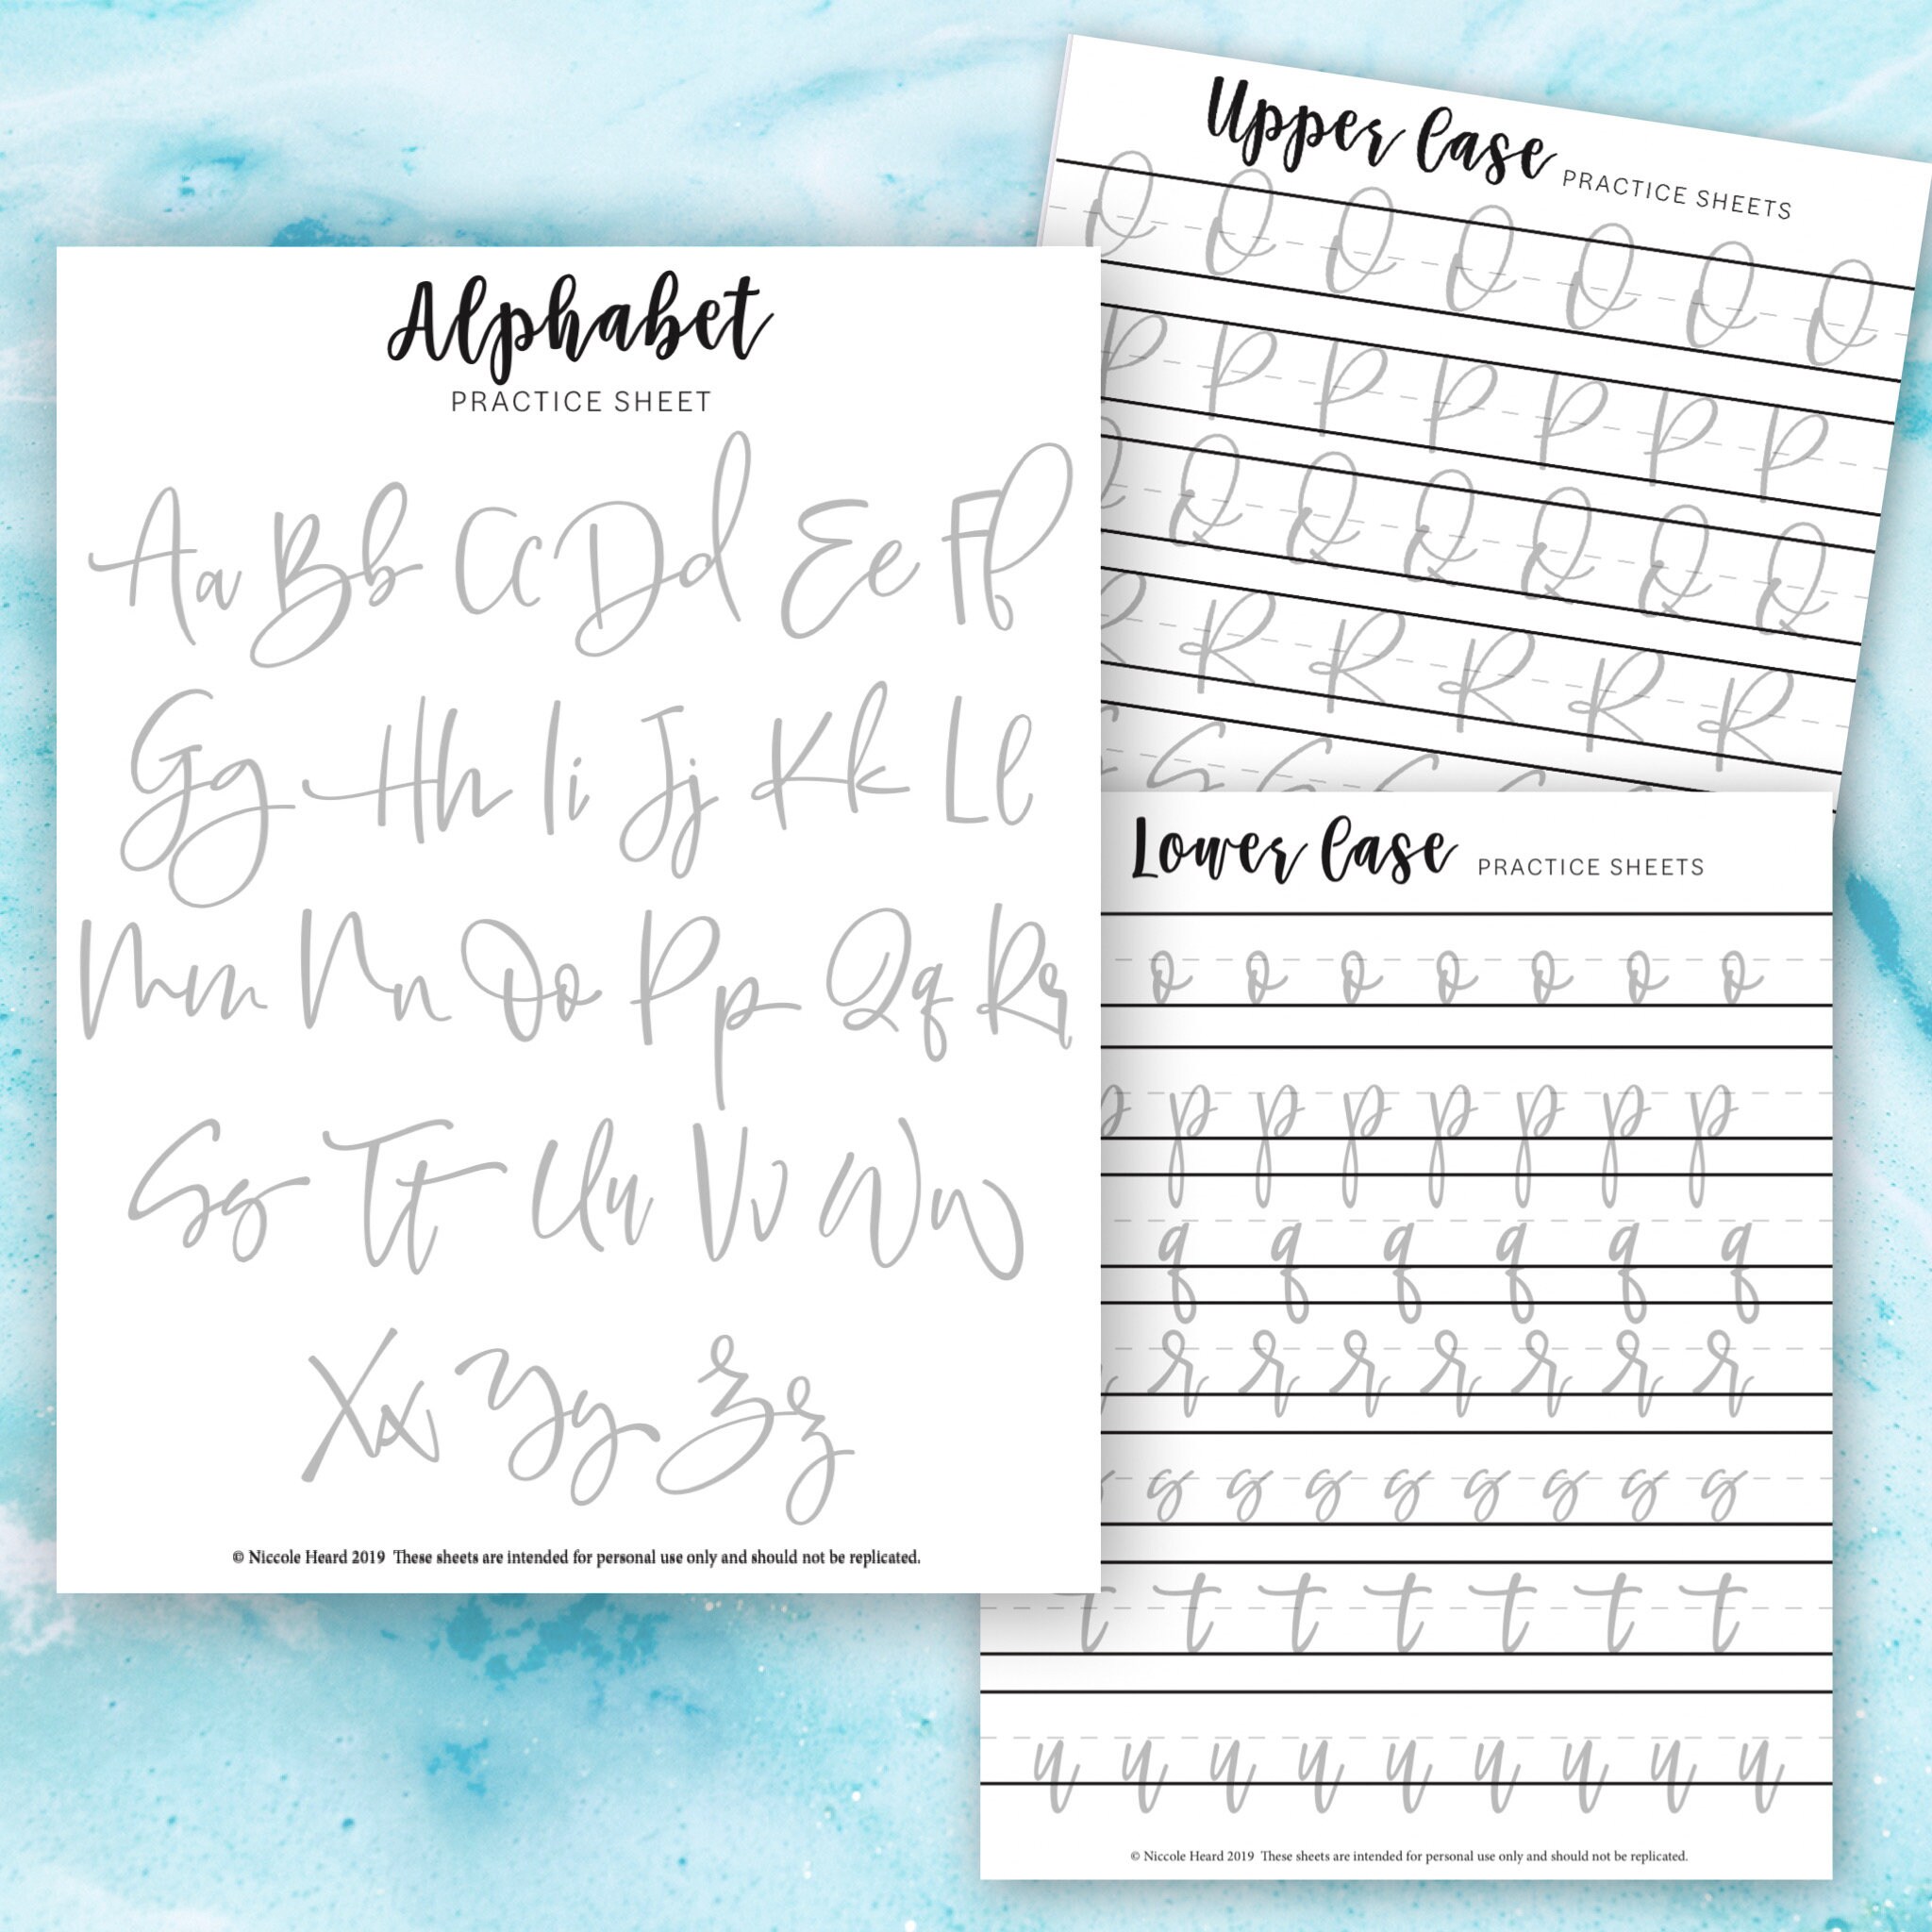 Alphabet
PRACTICE SHEET
Aa Bb Cc Dd Ee Ff
Gg Hh Ii Jj Kk Ll
Mm Nn Oo Pp Qq Rr
Ss Tt Uu Vv Ww
Xx Yy Zz
© Niccole Heard 2019 These sheets are intended for personal use only and should not be replicated.
Upper Case PRACTICE SHEETS
O O O O O O O
P P P P P P P
Q Q Q Q Q Q
R R R R R
S S S S
Lower Case PRACTICE SHEETS
o o o o o o o
p p p p p p p p
q q q q q q
r r r r r r r
s s s s s s s s
t t t t t t t
u u u u u u u u u
© Niccole Heard 2019 These sheets are intended for personal use only and should not be replicated.